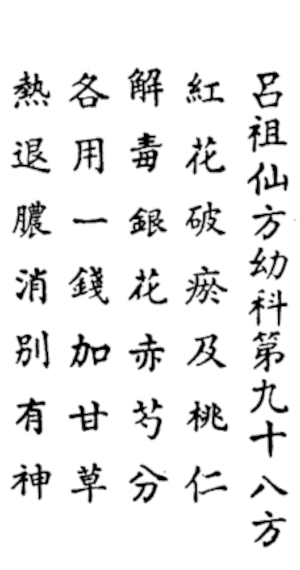 呂祖仙方幼科第九十八方
紅花破瘀及桃仁
解毒銀花赤芍分
各用一錢加甘草
熱退膿消別有神